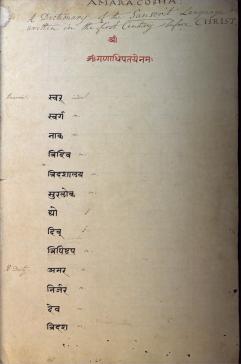 AMARACOSHA
A Dictionary of the Sanscrit Language
written in the first Century before CHRIST
श्री
श्रीगणाधिपतयेनमः
स्वर्
स्वर्ग
नाक
त्रिदिव
त्रिदशालय
सुरलोक
द्यो
दिव्
त्रिपिष्टप
अमर
निर्जर
देव
त्रिदश